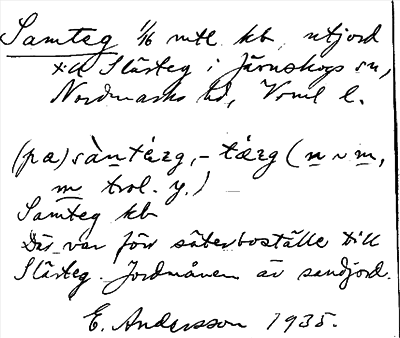 Samteg 1/6 mtl kb, utjord
till Slärteg i Järnskogs sn,
Nordmarks hd, Vrml l.
(pa) sàntǽrg, -tǽrg (n ~ m,
m trol. y.)
Samteg kb
Där var förr säterboställe till
Slärteg. Jordmånen är sandjord.
E. Andersson 1935.